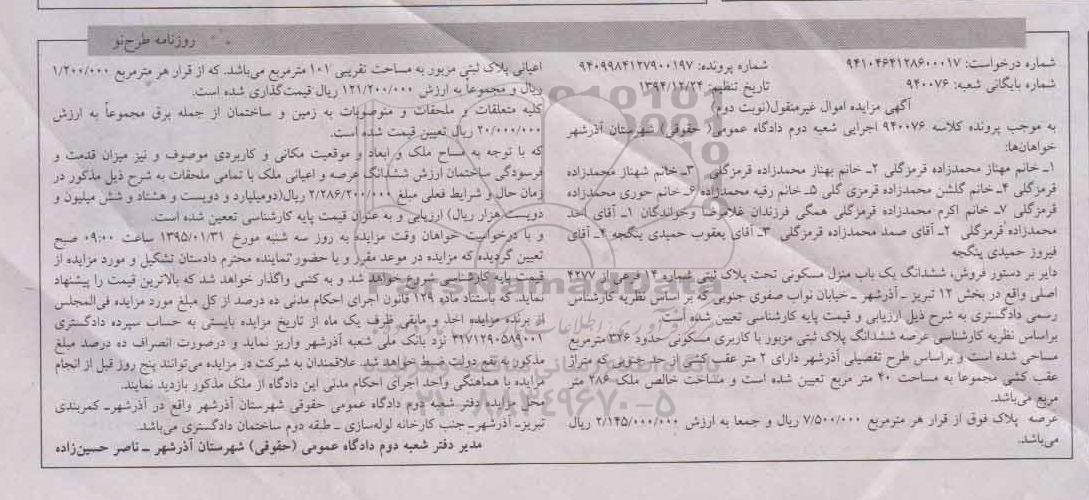 روزنامه طرح‌نو
شماره درخواست: ۹۴۱۰۴۶۴۱۲۸۶۰۰۰۱۷ شماره پرونده: ۹۴۰۹۹۸۴۱۲۷۹۰۰۱۹۷
شماره بایگانی شعبه: ۹۴۰۰۷۶ تاریخ تنظیم: ۱۳۹۴/۱۲/۲۴
آگهی مزایده اموال غیرمنقول(نوبت دوم)
به موجب پرونده کلاسه ۹۴۰۰۷۶ اجرایی شعبه دوم دادگاه عمومی( حقوقی) شهرستان آذرشهر
خواهان‌ها:
۱ـ خانم مهناز محمدزاده قرمزگلی ۲ـ خانم بهناز محمدزاده قرمزگلی ۳ـ خانم شهناز محمدزاده
قرمزگلی ۴ـ خانم گلشن محمدزاده قرمزی گلی ۵ـ خانم رقیه محمدزاده ۶ـ خانم حوری محمدزاده
قرمزگلی ۷ـ خانم اکرم محمدزاده قرمزگلی همگی فرزندان غلامرضا وخواندگان ۱ـ آقای احد
محمدزاده قرمزگلی ۲ـ آقای صمد محمدزاده قرمزگلی ۳ـ آقای یعقوب حمیدی ینگجه ۴ـ آقای
فیروز حمیدی ینگجه
دایر بر دستور فروش، ششدانگ یک باب منزل مسکونی تحت پلاک ثبتی شماره ۱۴ فرعی از ۴۲۷۷
اصلی واقع در بخش ۱۲ تبریز ـ آذرشهر ـ خیابان نواب صفوی جنوبی که بر اساس نظریه کارشناس
رسمی دادگستری به شرح ذیل ارزیابی و قیمت پایه کارشناسی تعیین شده است.
براساس نظریه کارشناسی عرصه ششدانگ پلاک ثبتی مزبور با کاربری مسکونی حدود ۳۲۶ مترمربع
مساحی شده است و براساس طرح تفصیلی آذرشهر دارای ۲ متر عقب کشی از حد جنوبی که متراژ
عقب کشی مجموعا به مساحت ۴۰ متر مربع تعیین شده است و مساحت خالص ملک ۲۸۶ متر
مربع می‌باشد.
عرصه پلاک فوق از قرار هر مترمربع ۷/۵۰۰/۰۰۰ ریال و جمعا به ارزش ۲/۱۴۵/۰۰۰/۰۰۰ ریال
می‌باشد.
اعیانی پلاک ثبتی مزبور به مساحت تقریبی ۱۰۱ مترمربع می‌باشد. که از قرار هر مترمربع ۱/۲۰۰/۰۰۰
ریال و مجموعاً به ارزش ۱۲۱/۲۰۰/۰۰۰ ریال قیمت‌گذاری شده است.
کلیه متعلقات و ملحقات و منوصوبات به زمین و ساختمان از جمله برق مجموعاً به ارزش
۲۰/۰۰۰/۰۰۰ ریال تعیین قیمت شده است.
که با توجه به مساح ملک و ابعاد و موقعیت مکانی و کاربردی موصوف و نیز میزان قدمت و
فرسودگی ساختمان ارزش ششدانگ عرصه و اعیانی ملک با تمامی ملحقات به شرح ذیل مذکور در
زمان حال و شرایط فعلی مبلغ ۲/۲۸۶/۲۰۰/۰۰۰ ریال(دومیلیارد و دویست و هشتاد و شش میلیون و
دویست هزار ریال) ارزیابی و به عنوان قیمت پایه کارشناسی تعیین شده است.
و با درخواست خواهان وقت مزایده به روز سه شنبه مورخ ۱۳۹۵/۰۱/۳۱ ساعت ۰۹:۰۰ صبح
تعیین گردیده که مزایده در موعد مقرر و با حضور نماینده محترم دادستان تشکیل و مورد مزایده از
قیمت پایه کارشناسی شروع خواهد شد و به کسی واگذار خواهد شد که بالاترین قیمت را پیشنهاد
نماید. که باستناد ماده ۱۲۹ قانون اجرای احکام مدنی ده درصد از کل مبلغ مورد مزایده فی‌المجلس
از برنده مزایده اخذ و مابقی ظرف یک ماه از تاریخ مزایده بایستی به حساب سپرده دادگستری
۲۱۷۱۲۹۰۵۸۹۰۰۱ نزد بانک ملی شعبه آذرشهر واریز نماید و درصورت انصراف ده درصد مبلغ
مذکور به نفع دولت ضبط خواهد شد. علاقمندان به شرکت در مزایده می‌توانند پنج روز قبل از انجام
مزایده با هماهنگی واحد اجرای احکام مدنی این دادگاه از ملک مذکور بازدید نمایند.
محل مزایده دفتر شعبه دوم دادگاه عمومی حقوقی شهرستان آذرشهر واقع در آذرشهرـ کمربندی
تبریزـ آذرشهرـ جنب کارخانه لوله‌سازی ـ طبقه دوم ساختمان دادگستری می‌باشد.
مدیر دفتر شعبه دوم دادگاه عمومی (حقوقی) شهرستان آذرشهر ـ ناصر حسین‌زاده
ParsNamadData
۰۲۱-۸۸۳۴۹۶۷۰-۵